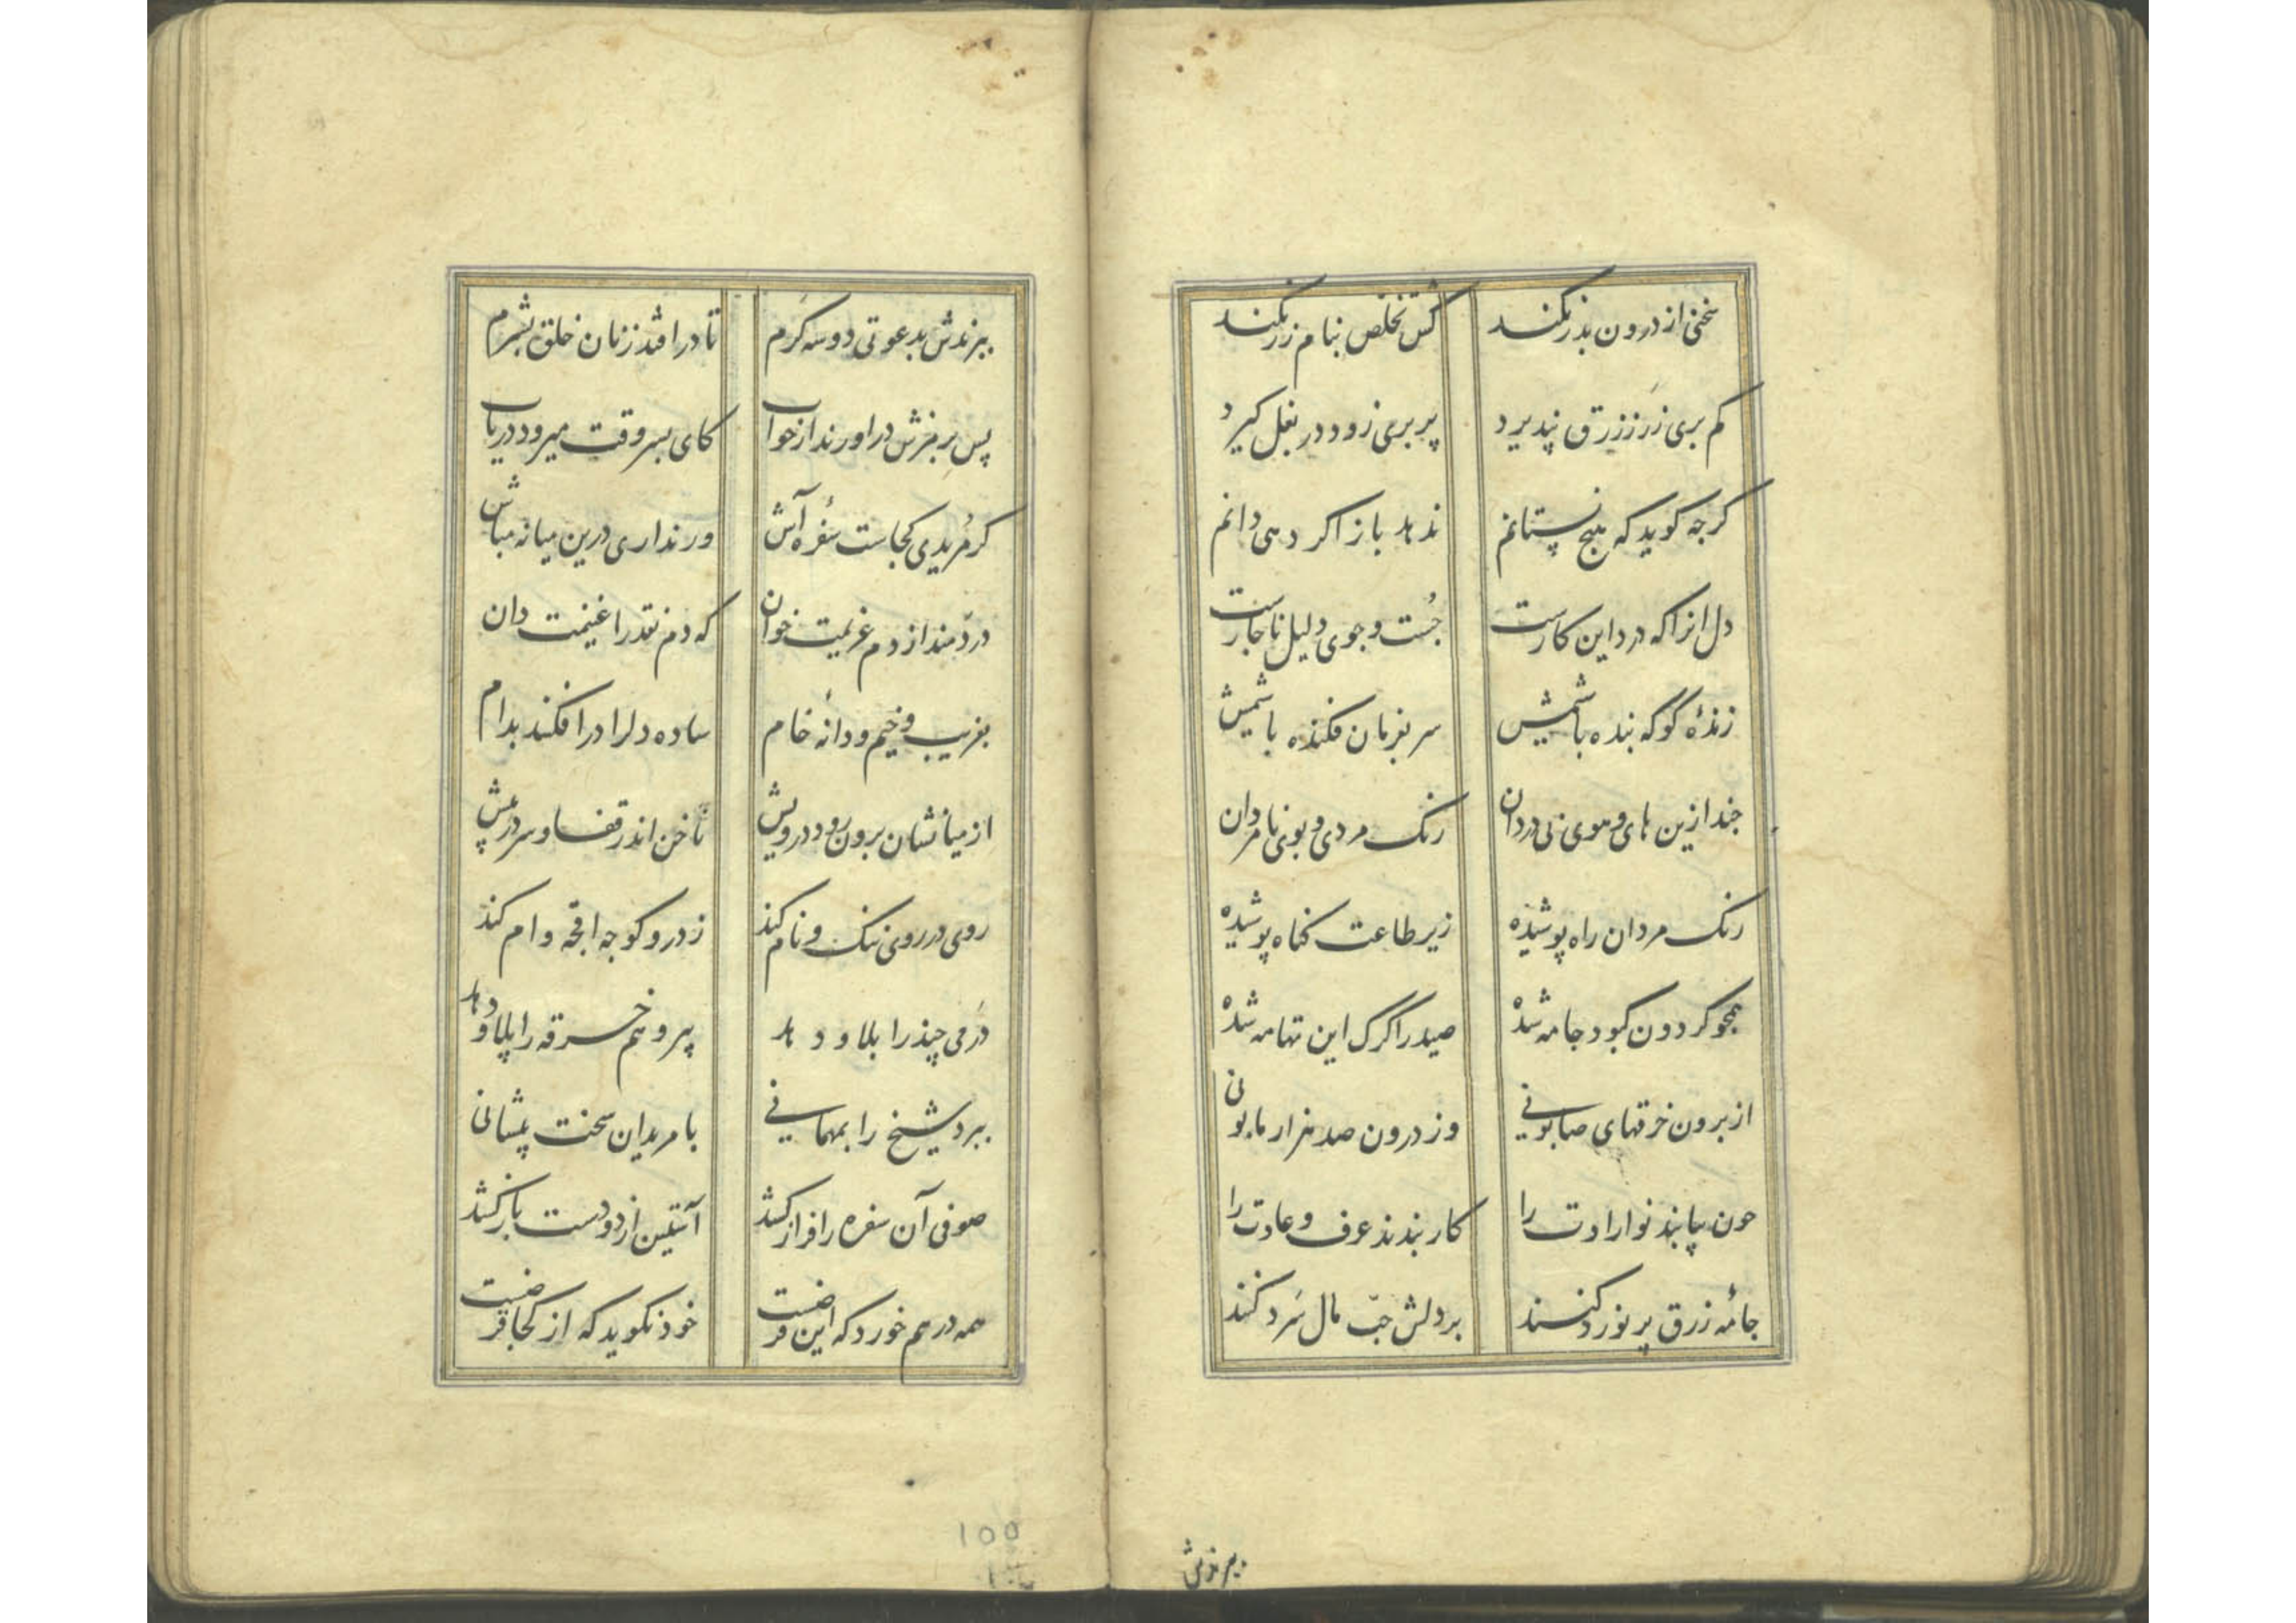 سخنی از درون بذر نکند
کش تخلص بنام زر نکند
کم بری زر ز زرق نپذیرد
پر بری زود در بغل کیرد
کرجه کوید که هیج نستانم
ندهد باز اکر دهی دانم
دل انرا که درد این کارست
جست و جوی دلیل ناجارست
زندهٔ کو که بنده باشمیش
سر بفرمان فکنده باشمیش
جند ازین های و هوی بی دردان
رنک مردی و بوی نامردان
رنک مردان راه پوشیده
زیر طاعت کناه پوشیده
همجو کردون کبود جامه شده
صید را کرک این تهامه شده
از برون خرقهای صابونی
وز درون صد هزار مابونی
جون بیابند نوارادت را
کار بندند عرف و عادت را
جامهٔ زرق بر نورد کنند
بر دلش حب مال سرد کنند
ببرندش
ببرندش بدعوتی دو سه کرم
تا درافتد ز نان خلق بشرم
پس بر مغزش دراورند از خواب
کای پسر وقت میرود دریاب
کر مریدی کجاست سفره آش
ور نداری درین میانه مباش
دردمند از دم عزیمت خوان
که دم نقد را غنیمت دان
بفریب وخیم و دانهٔ خام
ساده دل را درافکند بدام
از میانشان برون رود درویش
ناخن اندر قفا و سر در پیش
روی در روی ننک و نام کند
زر درو کوجه اقجه وام کند
درمی چند را بلاو دهد
پیر و هم خرقه را پلاو دهد
ببرد شیخ را بمهمانی
با مریدان سخت پیشانی
صوفی آن سفره را فراز کشد
آستین از دو دست باز کشد
همه در هم خورد که این فرضست
خود نکوید که از کجا قرضست
100